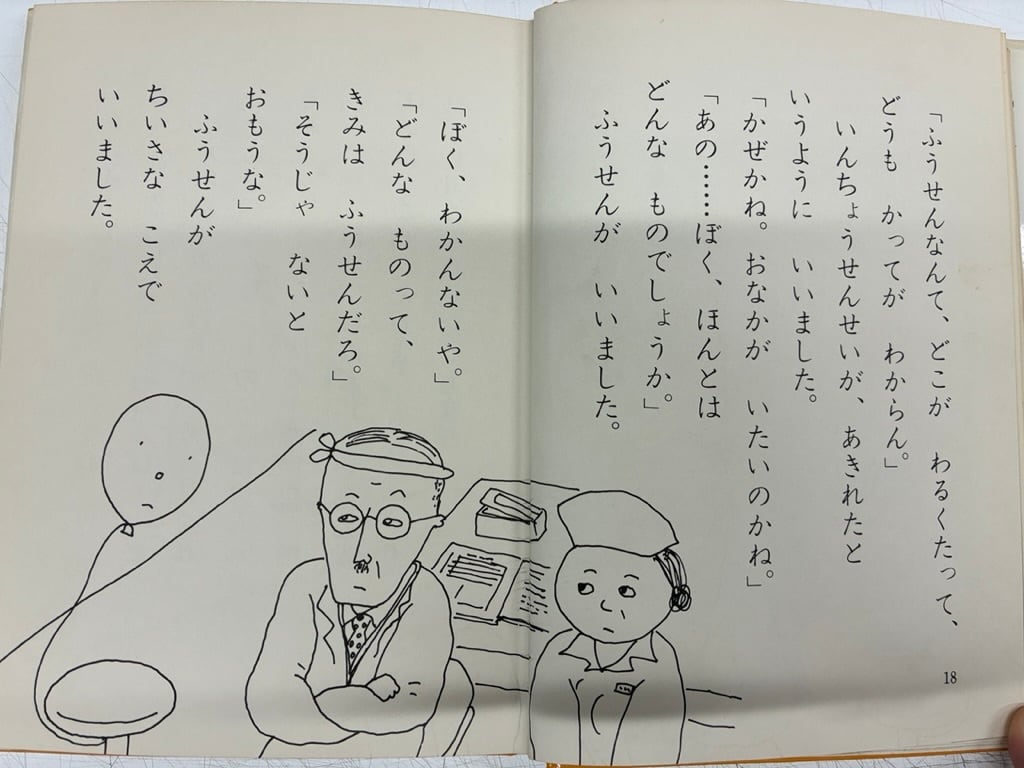 「ふうせんなんて、どこが　わるくたって、
どうも　かってが　わからん。」
　いんちょうせんせいが、あきれたと
いうように　いいました。
「かぜかね。おなかが　いたいのかね。」
「あの……ぼく、ほんとは
どんな　ものでしょうか。」
　ふうせんが　いいました。
18
「ぼく、わかんないや。」
「どんな　ものって、
きみは　ふうせんだろ。」
「そうじゃ　ないと
おもうな。」
　ふうせんが
ちいさな　こえで
いいました。